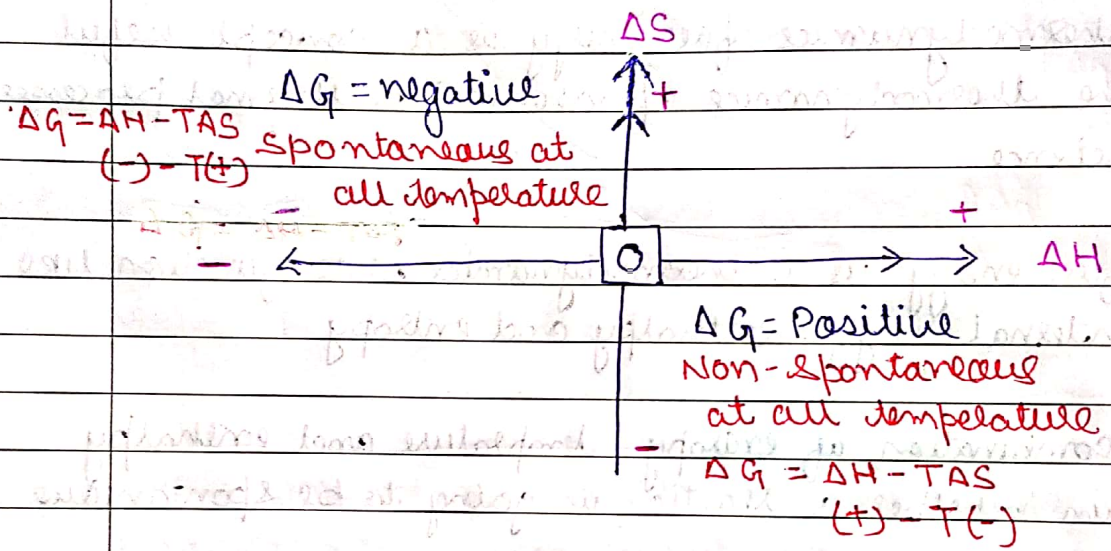 ΔS
ΔG = negative
+
ΔG = ΔH - TΔS
spontaneous at
(-) - T(+)
all temperature
-
+
-
O
ΔH
ΔG = Positive
Non-spontaneous
at all temperature
-
ΔG = ΔH - TΔS
(+) - T(-)